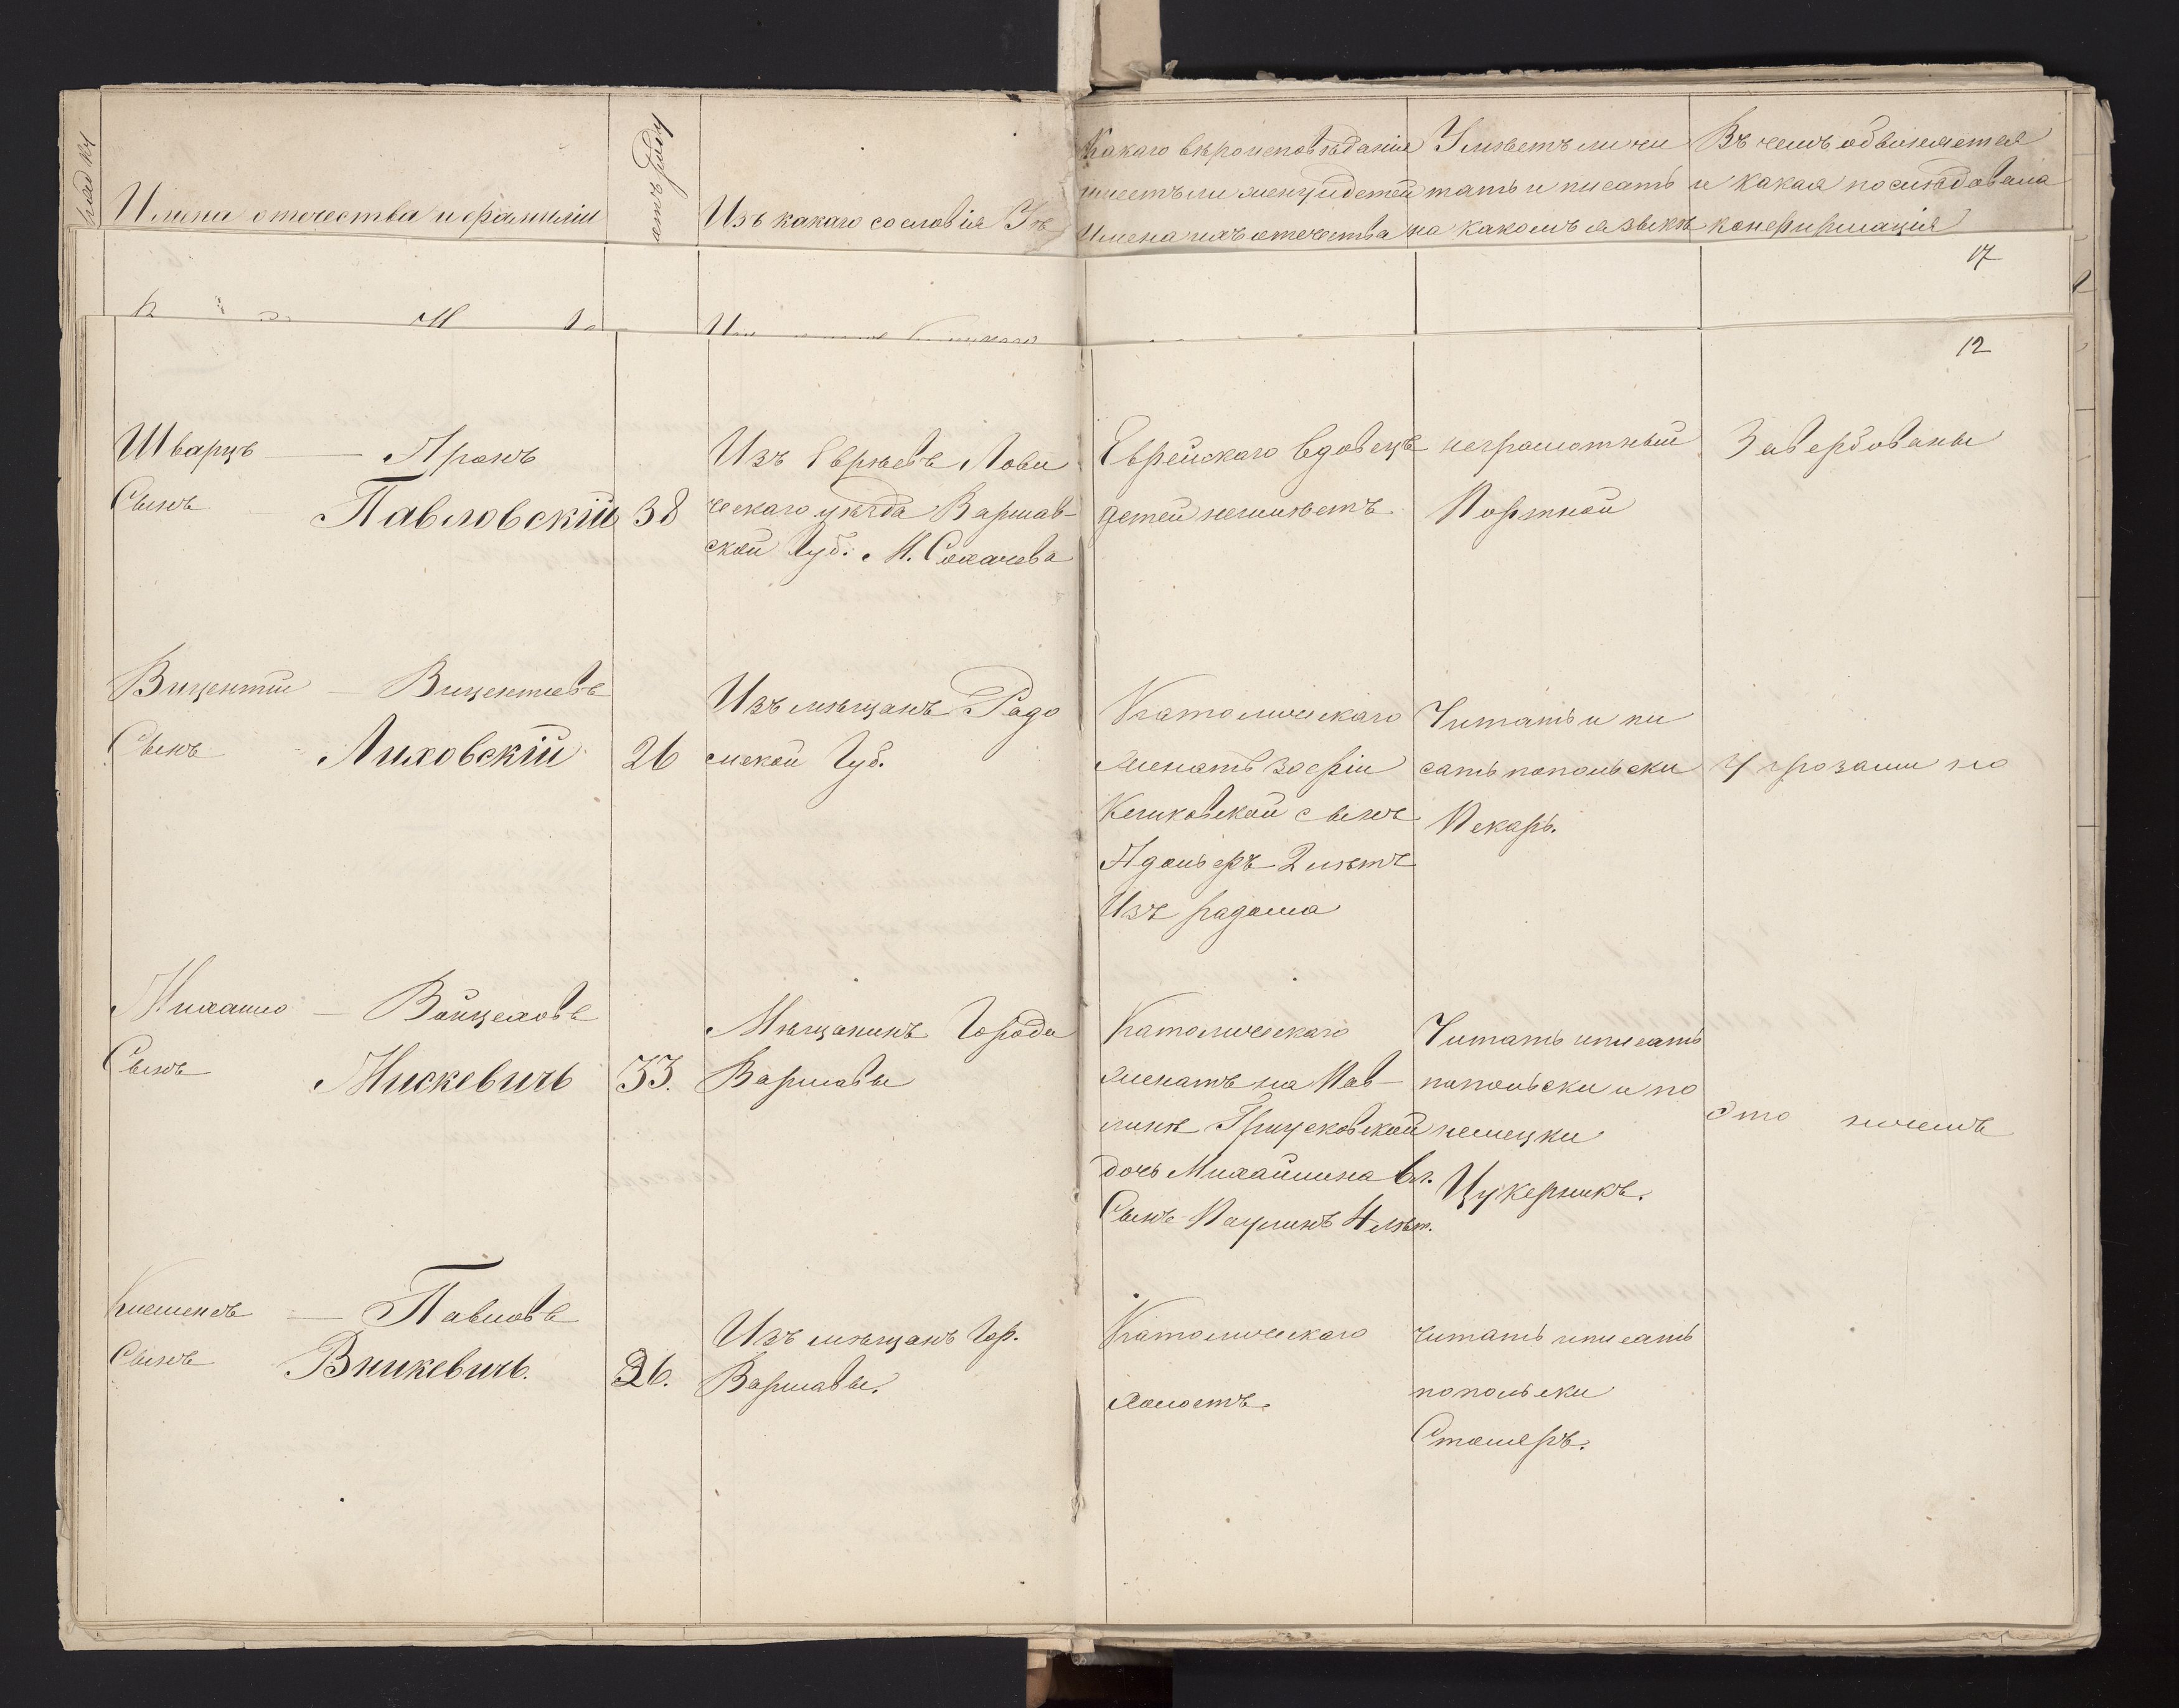 Имена отечества и фамиліи
Изъ какаго сословія
Какаго вѣроисповѣданія
имеетъ ли жену и детей
Имена ихъ отечества
Умѣетъ ли чи
тать и писать
на какомъ языкѣ
Въ чемъ обвиняется
и какая последовала
конфирмація
17
12
Шварцъ — Аронъ
Сынъ Павловскій
38
Изъ Евреевъ Лови
ческаго уѣзда Варшав-
ской Губ. М. Сохачева
Еврейскаго вдовецъ
детей неимѣетъ
неграмотный
Портной
Завербованы
Вицентій — Вицентіевъ
Сынъ Лиховскій
26
Изъ мѣщанъ Радо
мской Губ.
Католическаго
женатъ Зофіи
сынъ
Адольфъ 2 лѣтъ
Изъ радома
Читать и пи
сать попольски
Пекарь.
угрозами по
Михаило — Войцеховъ
Сынъ Мискевичъ
33.
Мѣщанинъ Города
Варшавы
Католическаго
женатъ на Пав-
линѣ
дочь Михайлина 6 л.
Сынъ Паулинъ 4 лѣт.
Читать и писать
попольски и по
немецки
Цукерникъ.
Это
Клеменсъ — Павловъ
Сынъ Вникевичъ.
26.
Изъ мѣщанъ Гор.
Варшавы.
Католическаго
холостъ.
читать и писать
попольски
Столяръ.